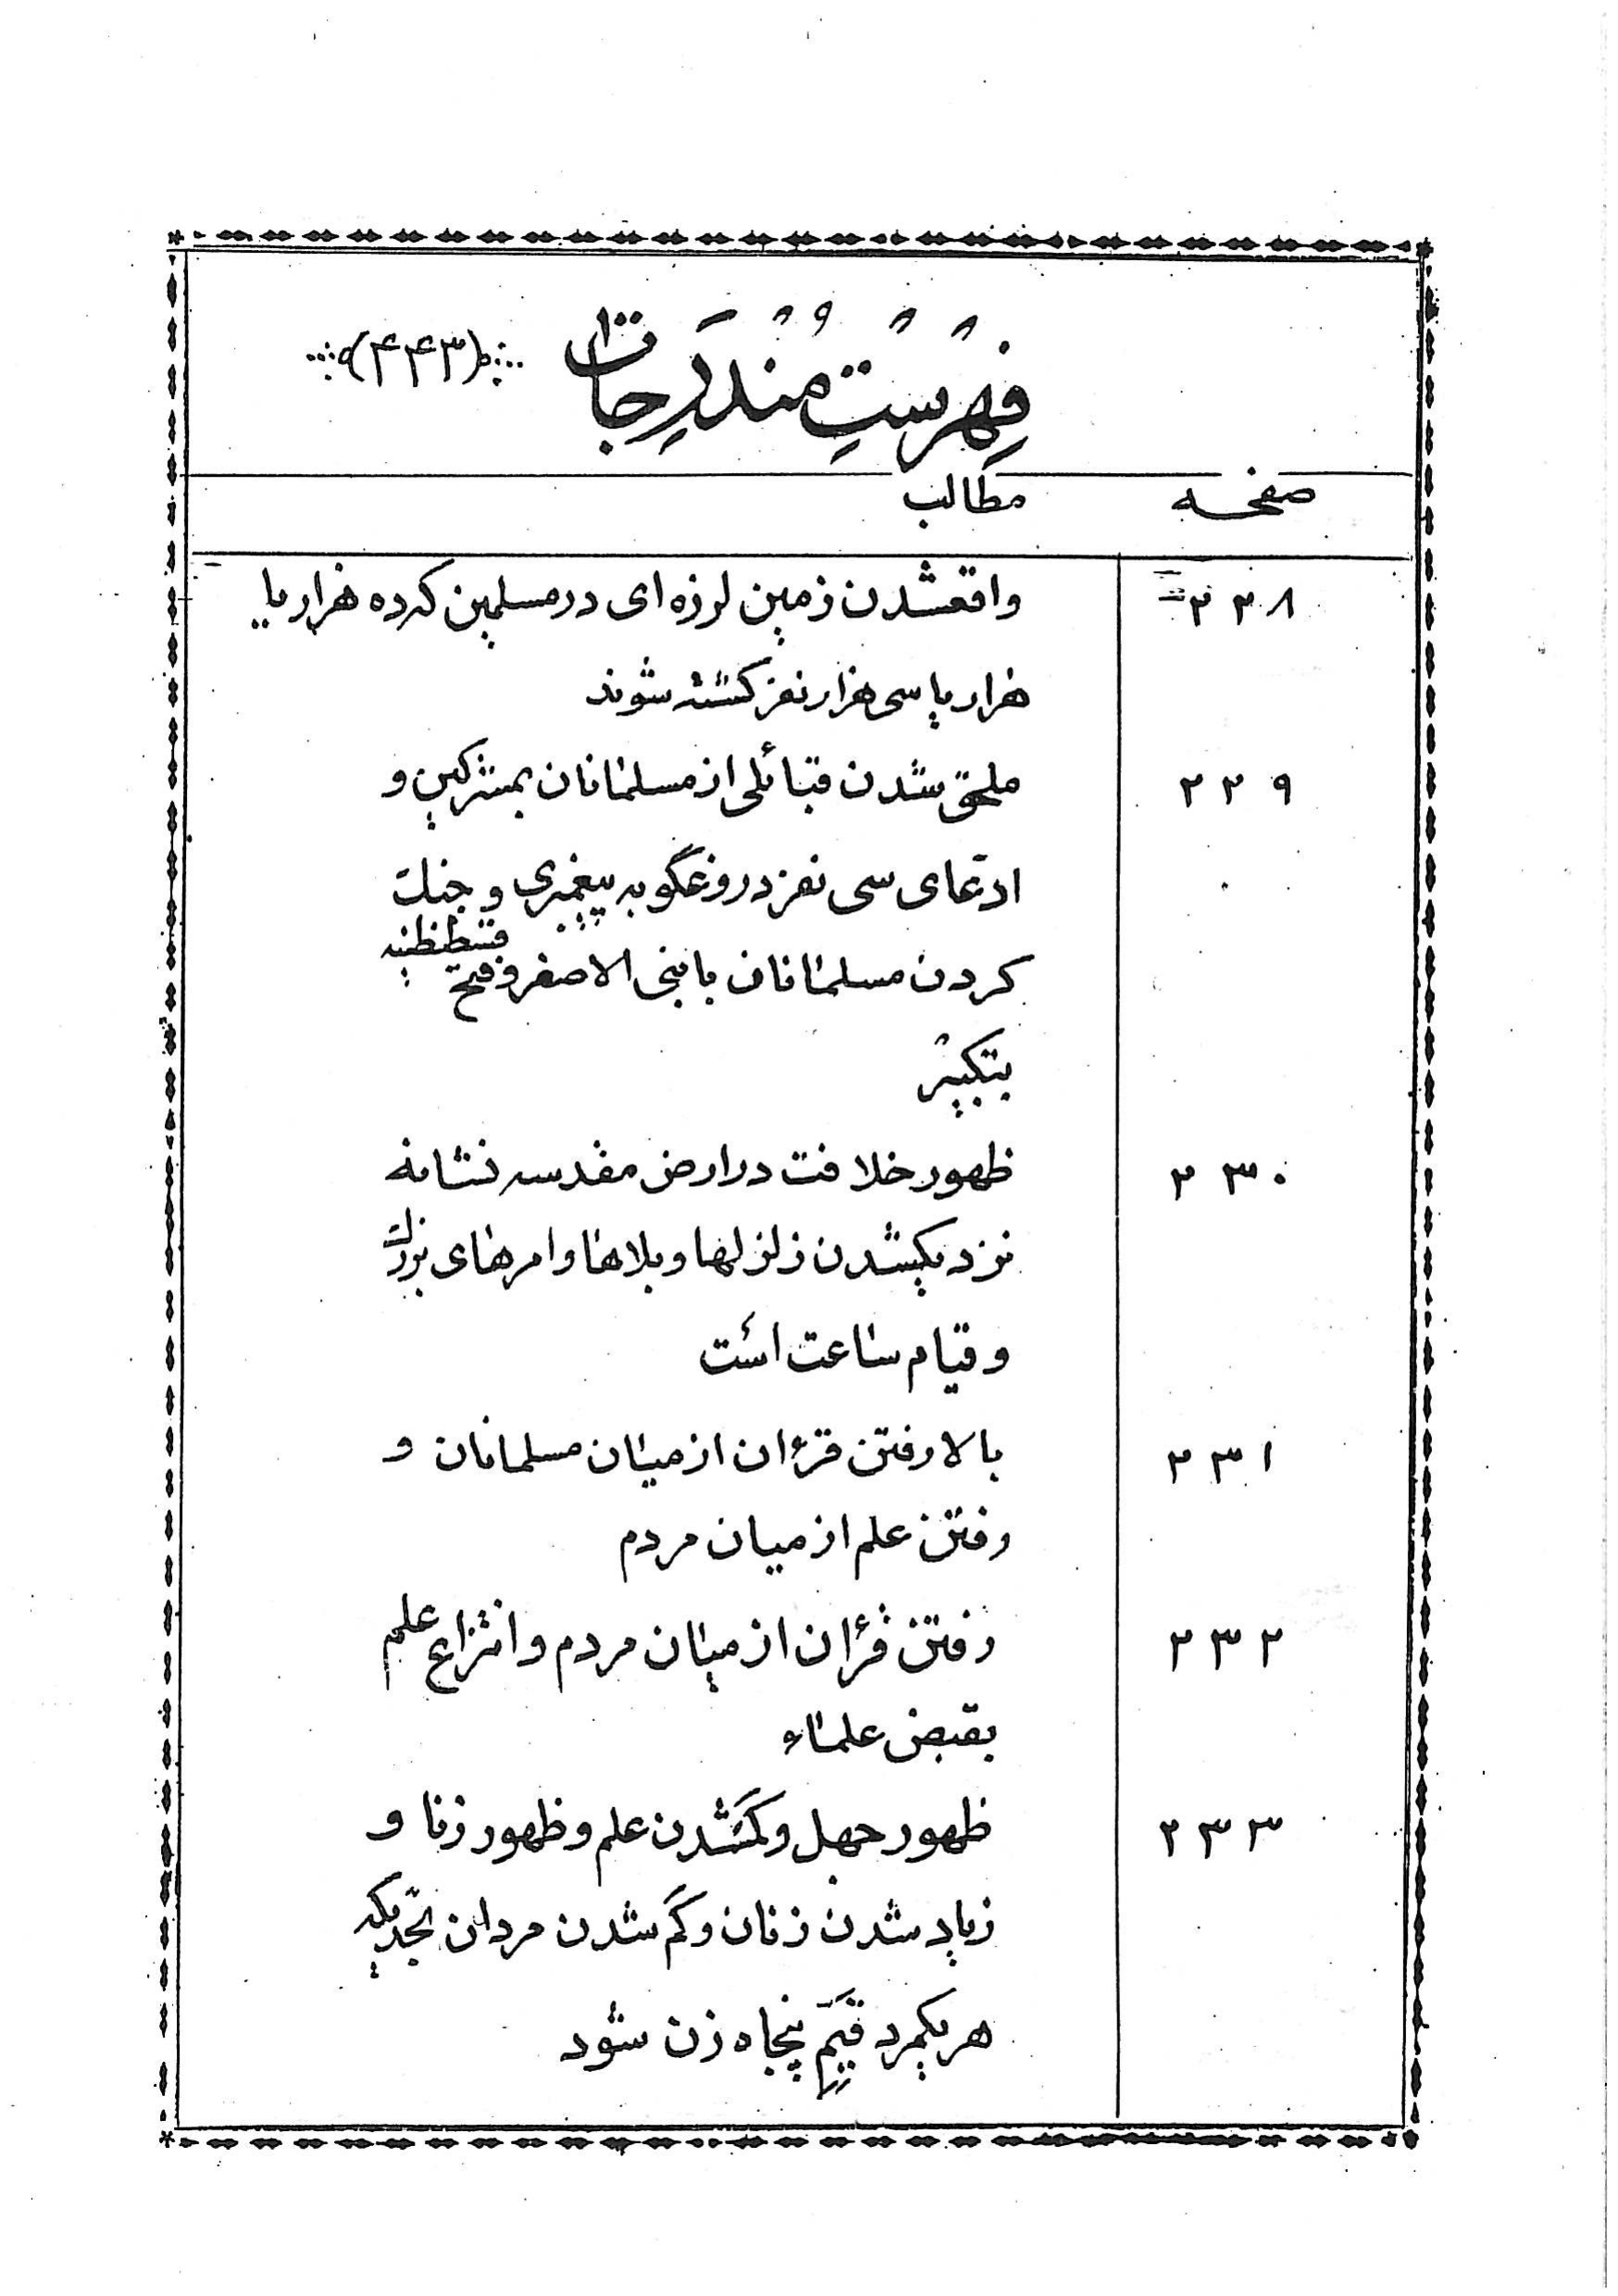 فِهْرِسْتِ مُنْدَرِجَات (۴۴۳)
صفحه مطالب
۲۲۸ واقعشدن زمین لرزه‌ای در مسلمین که ده هزار یا
هزار یا سی هزار نفر کشته شوند
۲۲۹ ملحق شدن قبائلی از مسلمانان بمشرکین و
ادّعای سی نفر دروغگو به پیغمبری و جنگ
کردن مسلمانان با بنی الاصفر و فتح قسطنطنیه
بتکبیر
۲۳۰ ظهور خلافت در ارض مقدسه نشانه
نزدیکشدن زلزلها و بلاها و امرهای بزرگ
و قیام ساعت است
۲۳۱ بالا رفتن قرءان از میان مسلمانان و
رفتن علم از میان مردم
۲۳۲ رفتن قرءان از میان مردم و انتزاع علم
بقبض علماء
۲۳۳ ظهور جهل و کمشدن علم و ظهور زنا و
زیاد شدن زنان و کم شدن مردان بحدّیکه
هر یکمرد قیّم پنجاه زن شود